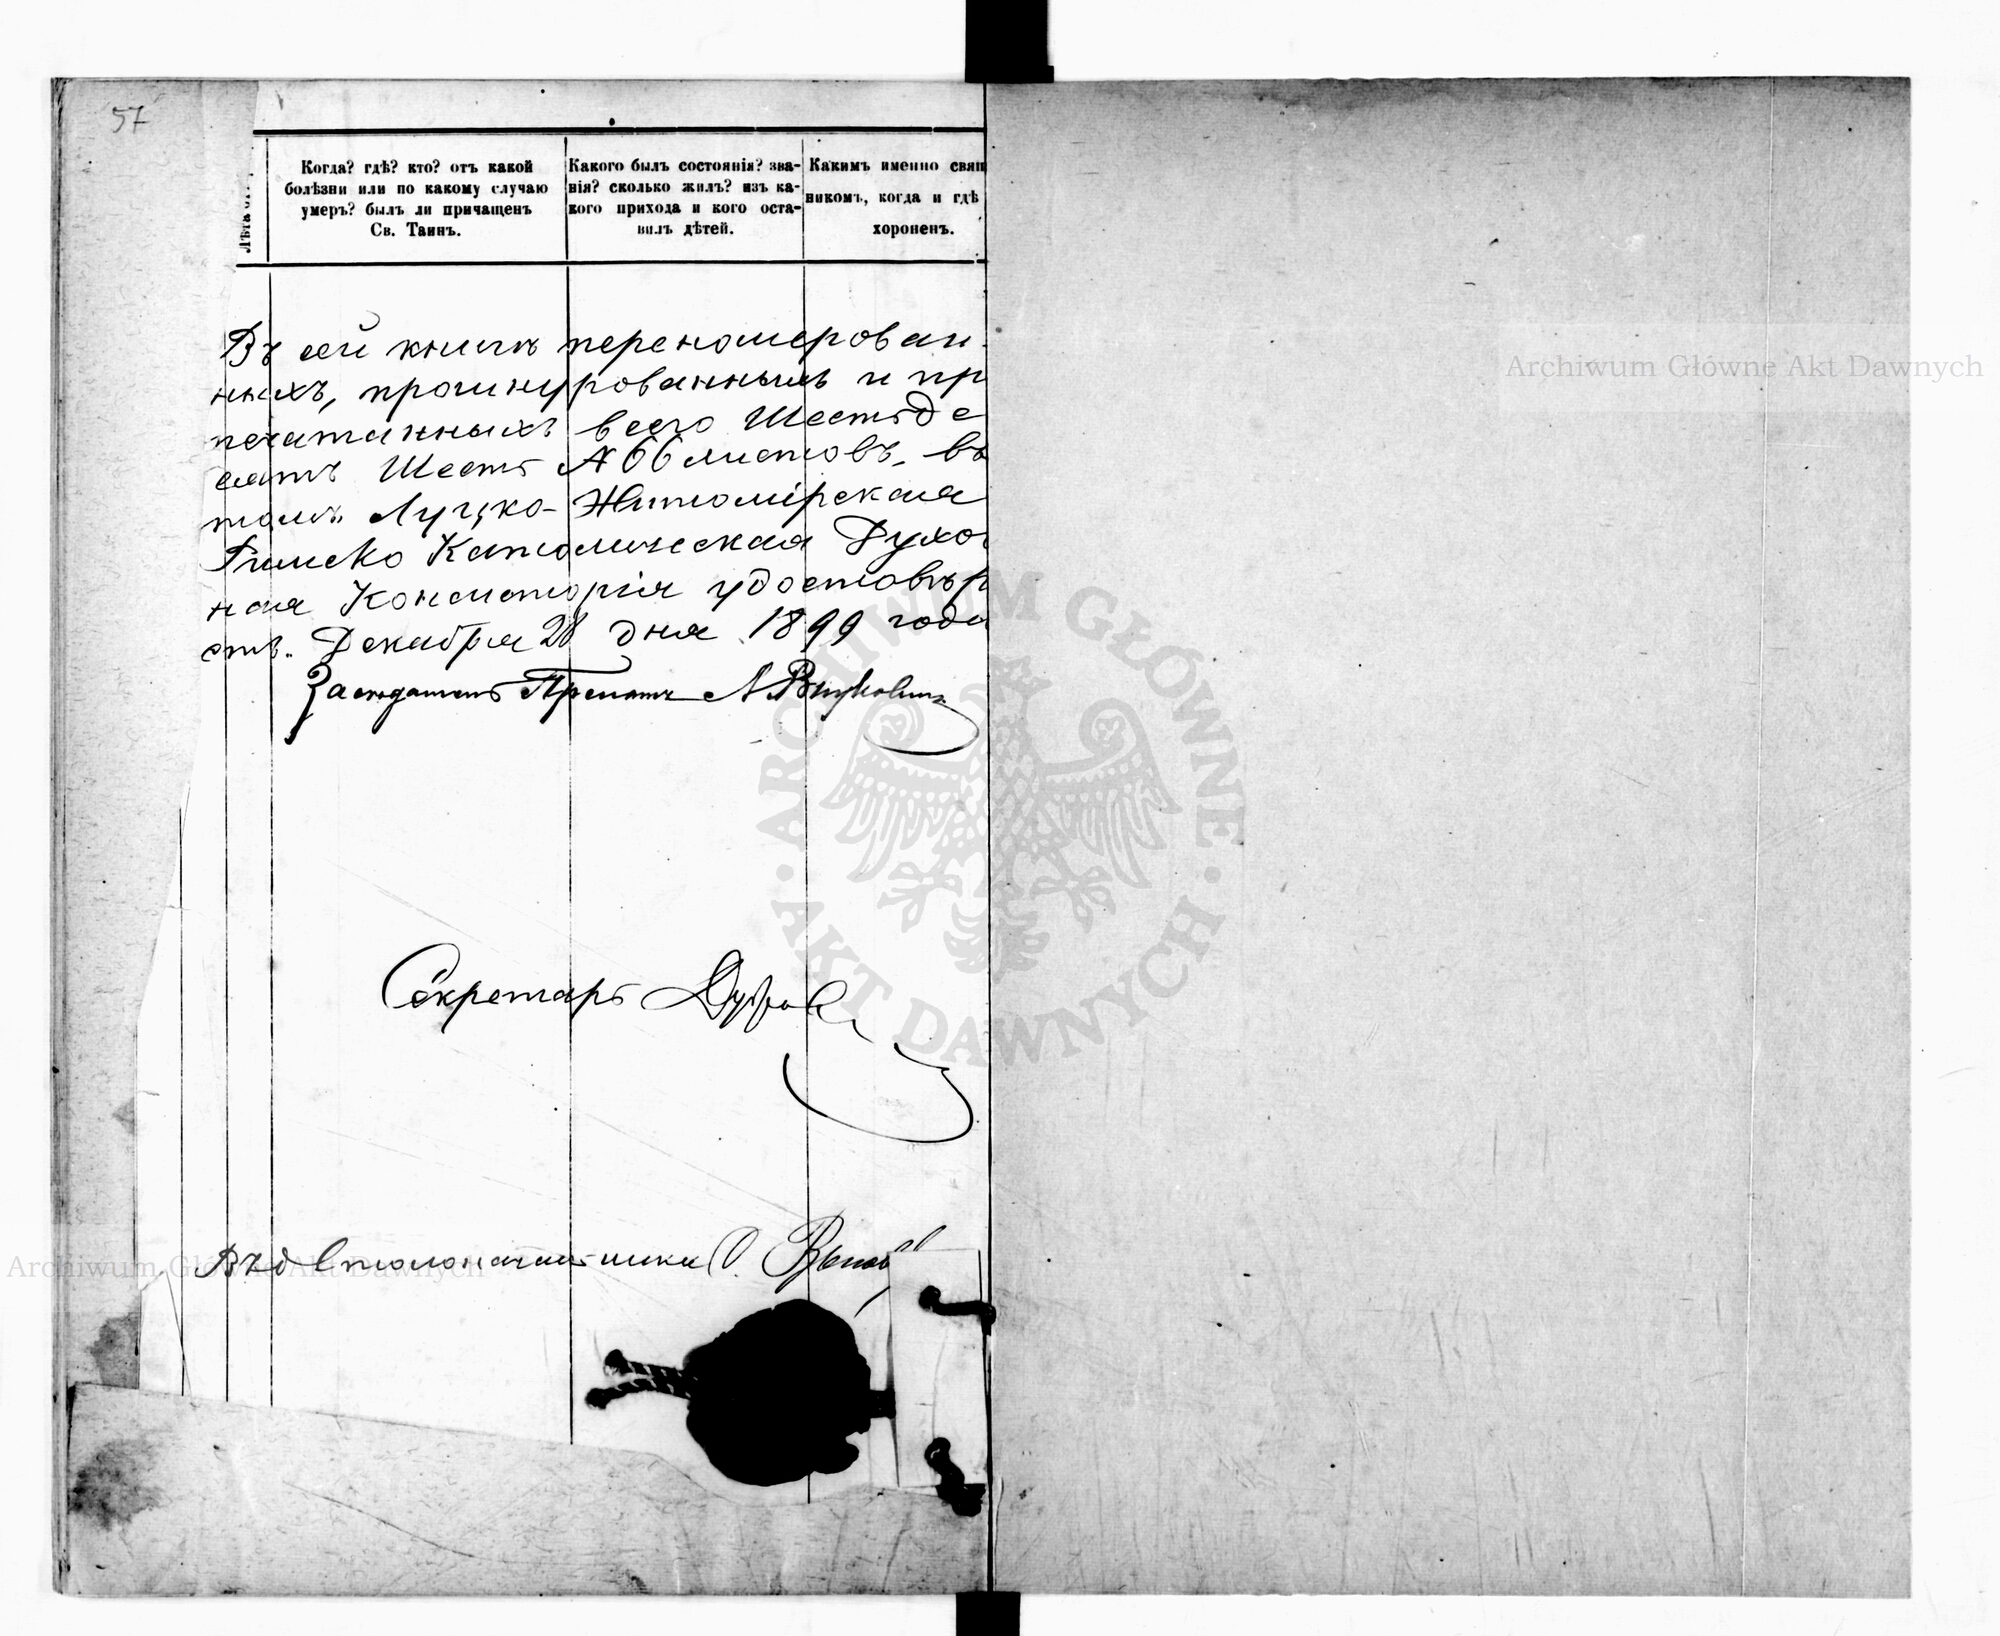 57
Когда? гдѣ? кто? отъ какой
болѣзни или по какому случаю
умеръ? былъ ли причащенъ
Св. Таинъ.
Какого былъ состоянія? зва-
нія? сколько жилъ? изъ ка-
кого прихода и кого оста-
вилъ дѣтей.
Какимъ именно свящ
никомъ, когда и гдѣ
хороненъ.
Въ сей книгѣ переномерован-
ныхъ, прошнурованныхъ и пр
печатанныхъ всего Шестьде
сятъ Шесть № 66 листовъ, въ
томъ Луцко-Житомірская
Римско Католическая Духо
ная Консисторія удостовѣр
етъ. Декабря 28 дня 1899 года
Засѣдатель Прелатъ А
Секретарь
Archiwum Główne Akt Dawnych
ARCHIWUM GŁÓWNE
AKT DAWNYCH
Archiwum Główne Akt Dawnych